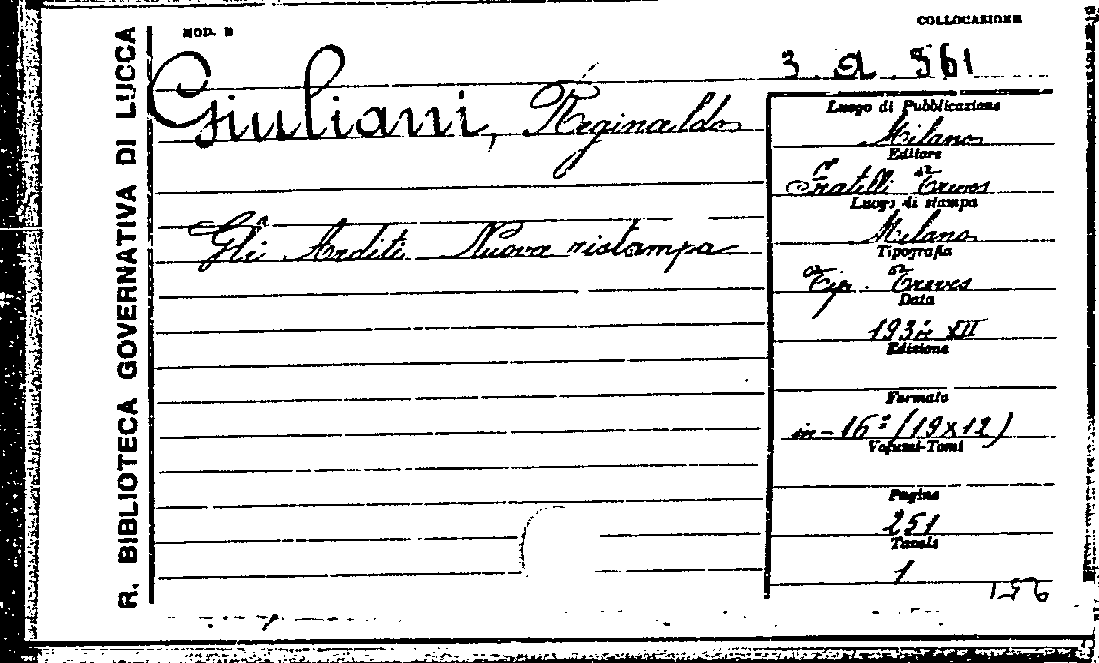 R. BIBLIOTECA GOVERNATIVA DI LUCCA
MOD. B
COLLOCAZIONE
3. A. 361
Giuliani, Reginaldo
Gli Arditi Nuova ristampa
Luogo di Pubblicazione
Milano
Editore
Fratelli Treves
Luogo di stampa
Milano
Tipografia
Tip. Treves
Data
1934 XII
Edizione
Formato
in-16º (19x12)
Volumi-Tomi
Pagine
251
Tavole
1